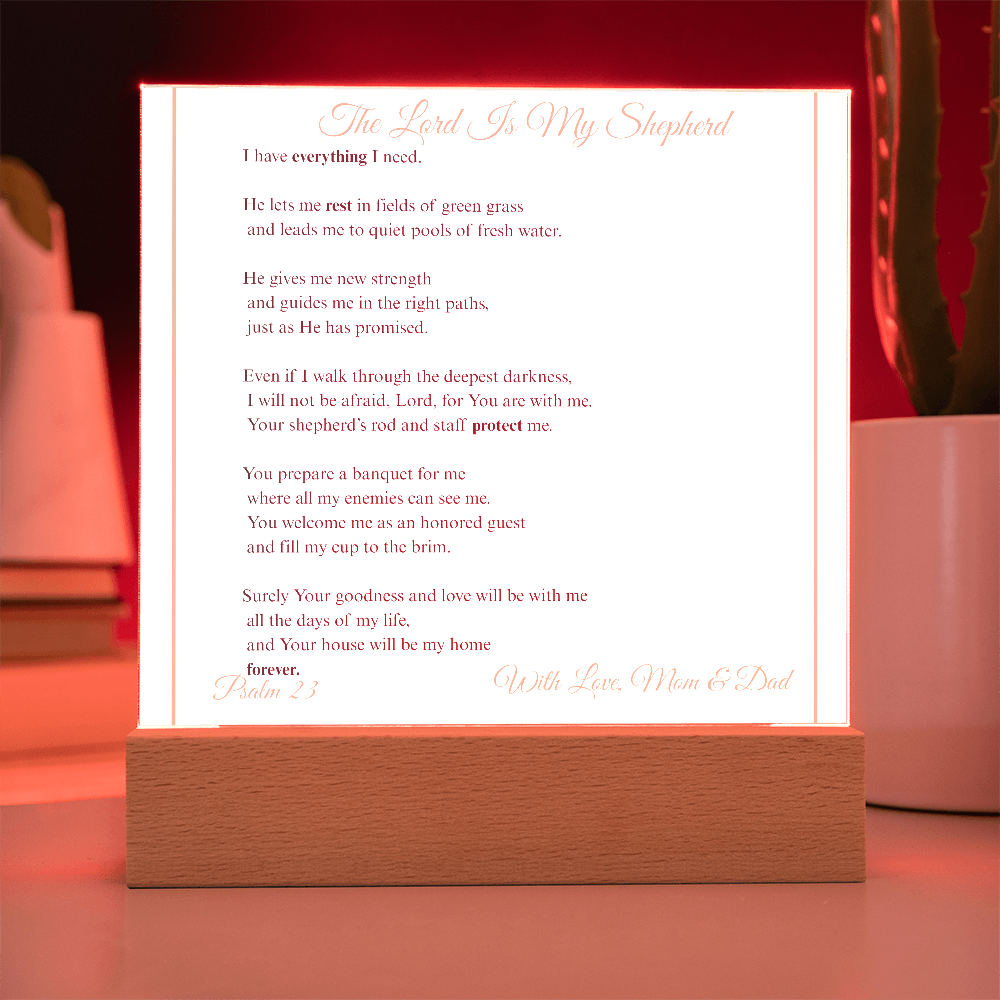 The Lord Is My Shepherd
I have everything I need.
He lets me rest in fields of green grass
and leads me to quiet pools of fresh water.
He gives me new strength
and guides me in the right paths,
just as He has promised.
Even if I walk through the deepest darkness,
I will not be afraid, Lord, for You are with me.
Your shepherd's rod and staff protect me.
You prepare a banquet for me
where all my enemies can see me.
You welcome me as an honored guest
and fill my cup to the brim.
Surely Your goodness and love will be with me
all the days of my life,
and Your house will be my home
forever.
Psalm 23
With Love, Mom & Dad